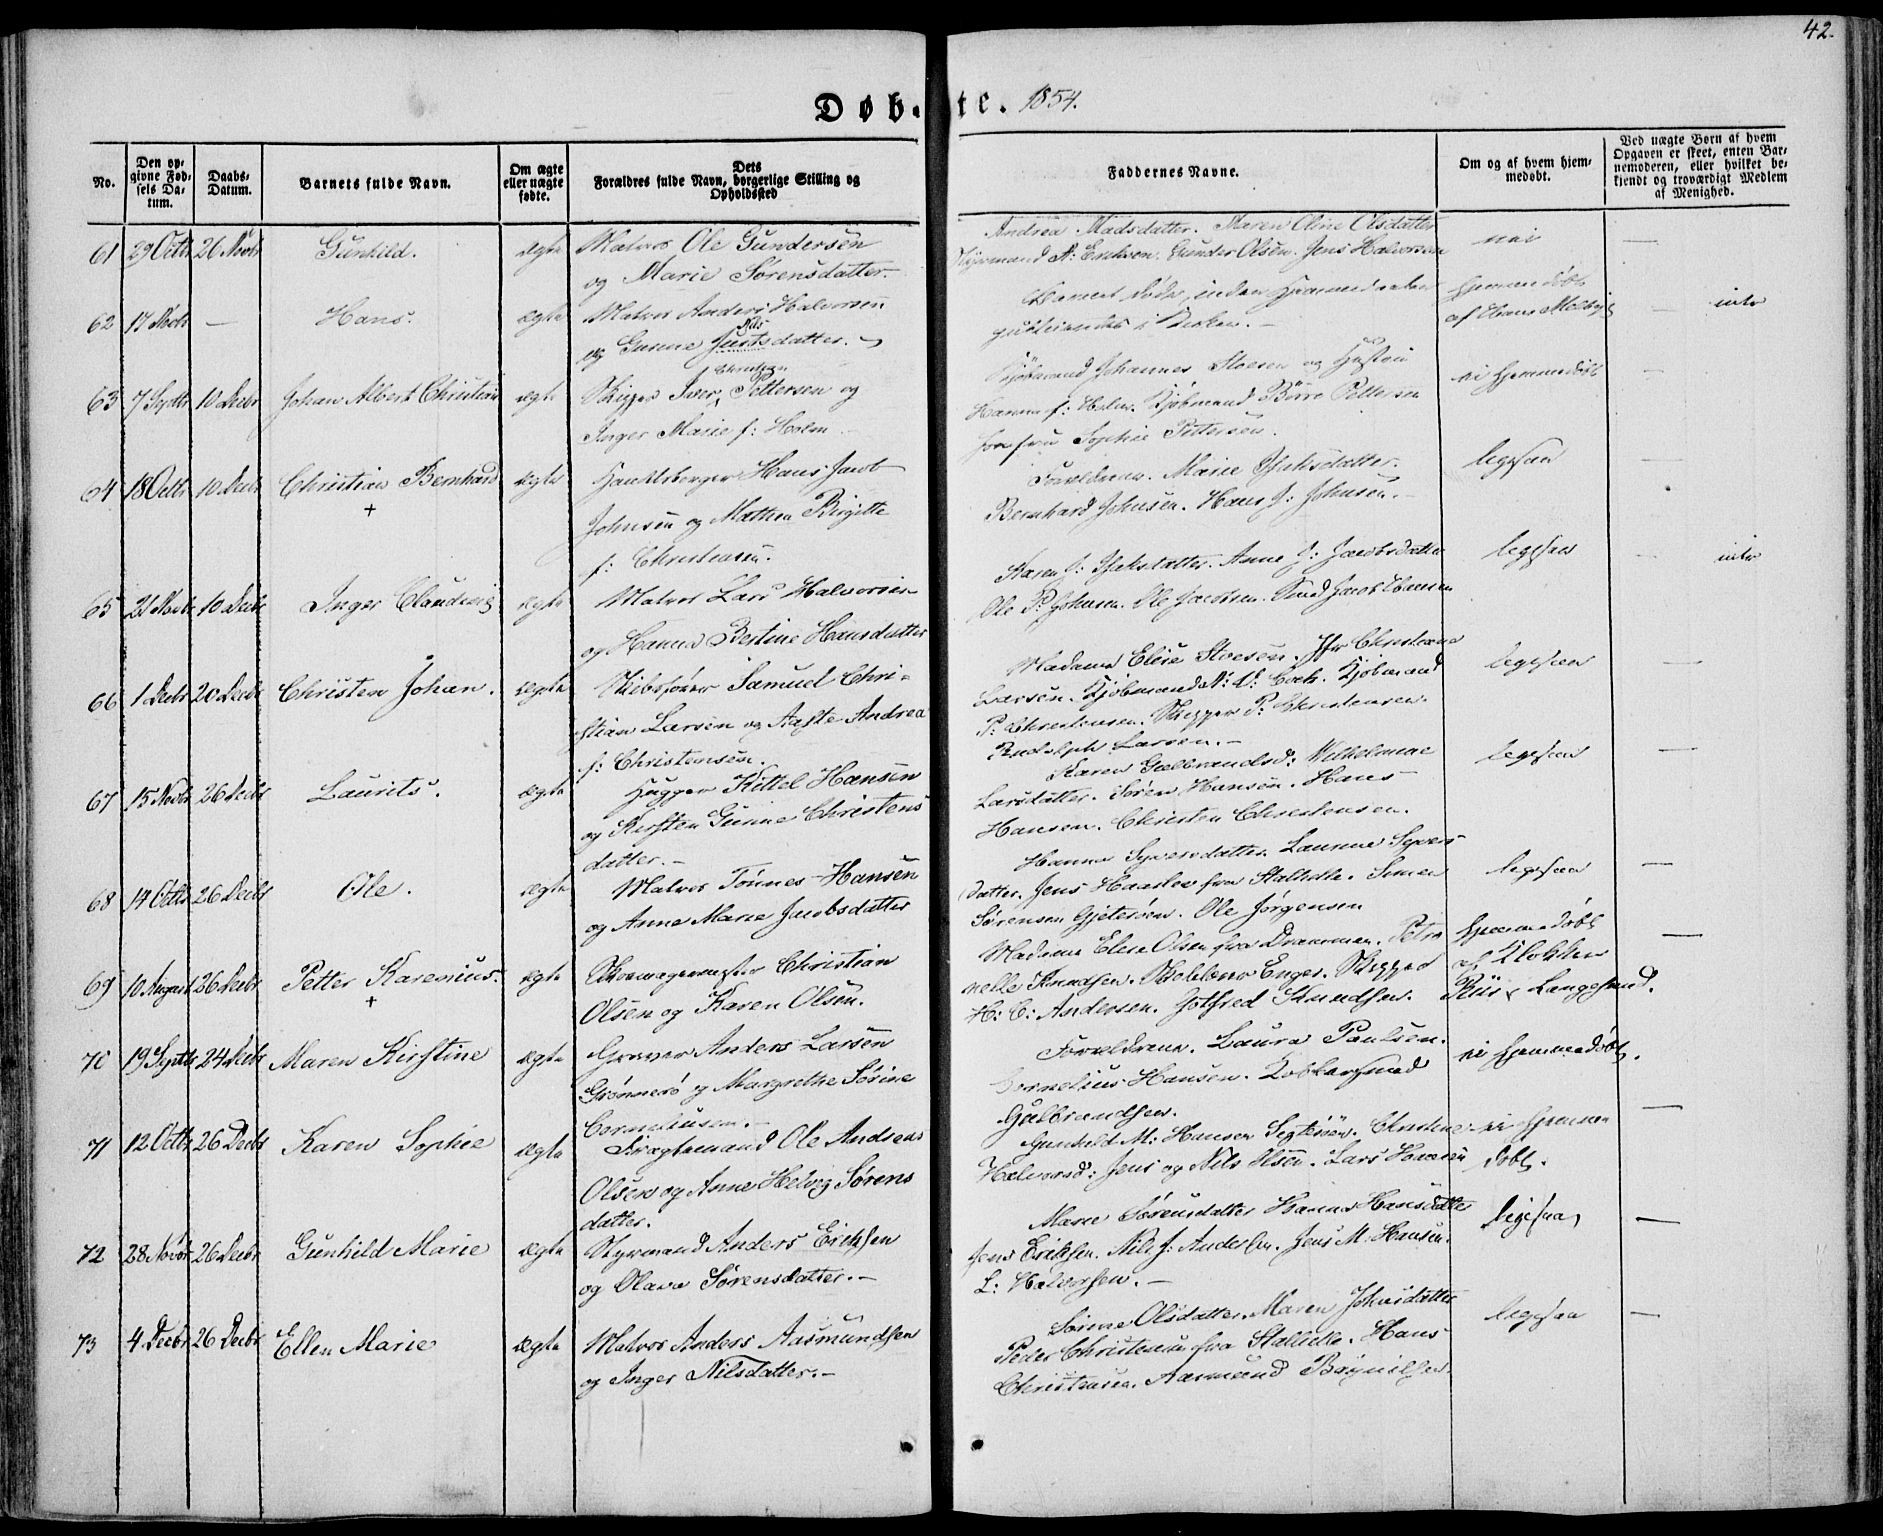 42.
Døbte. 1854.
No.
Den opgivne Fødsels Datum.
Daabs-Datum.
Barnets fulde Navn.
Om ægte eller uægte fødte.
Dets Forældres fulde Navn, borgerlige Stilling og Opholdssted
Faddernes Navne.
Om og af hvem hjemmedøbt.
Ved uægte Børn af hvem Opgaven er skeet, enten Barnemoderen, eller hvilket bekjendt og troværdigt Medlem af Menighed.
61 29 Octb 26 Novbr Gunhild. ægte Matros Ole Gundersen
og Marie Sørensdatter.
Andrea Madsdatter. Maren Oline Olsdatter
Styrmand A: Eriksen. Gunder Olsen. Jens Halvorsen
nei —
62 17 Novbr — Hans. ægte Matros Anders Halvorsen
Nils
og Gunne Justsdatter.
Barnet døde inden
i Kirken. —
hjemmedøbt
af Hans Melbye
—
intr
63 7 Septbr 10 Decbr Johan Albert Christian ægte Skipper Iver Christian Pettersen og
Inger Marie f: Holm
Kjøbmand Johannes Stoesen og Hustru
Hanna f: Holm. Kjøbmand Börre Pettersen
Jomfru Sophie Pettersen.
ei hjemmedøbt
—
64 18 Octbr 10 Decbr Christian Bernhard ægte Handelsborger Hans Jacob
+
Johnsen og Mathea Birgitte
f: Christensen.
Forældrene. Marie Isaksdatter.
Bernhard Johnsen. Hans J: Johnsen.
ligesaa —
65 21 Novbr 10 Decbr Inger Claudine ægte Matros Lars Halvorsen
og Hanna Bertine Hansdatter
Karen J: Isaksdatter. Anne J: Jacobsdatter
Ole P: Johnsen. Ole Jacobsen. Knud Jacob Hansen
ligesaa — intr
66 1 Decbr 20 Decbr Christen Johan. ægte Skibsfører Samuel Christian Larsen og Aaste Andrea
f: Christensen.
Madame Elise Stoesen. Jfr Christiane
Larsen. Kjøbmand N: V: Coch. Kjøbmand
P: Christensen. Skipper P: Christensen.
Rudolph Larsen. —
ligesaa —
67 15 Novbr 26 Decbr Laurits. ægte Hugger Kittel Hansen
og Kirsten Gurine Christens
datter. —
Karen Gulbrandsd: Wilhelmine
Larsdatter. Søren Hansen. Hans
Hansen. Christen Christensen.
ligesaa —
68 14 Octbr 26 Decbr Ole. ægte Matros Tönnes Hansen
og Anne Marie Jacobsdatter
Hanna Syversdatter. Laurine Syvers
datter. Jens Haaslev fra Stathelle. Simen
Sörensen Gjeterøen. Ole Jørgensen
ligesaa —
69 10 August 26 Decbr Petter Karenius. ægte Skomagermester Christian
+
Olsen og Karen Olsen.
Madame Elise Olsen fra Drammen. Petro
nelle Knudsen. Skolelærer Enger. Skipper
H: C: Andersen. Gotfred Knudsen.
hjemmedøbt
af Klokker
Riis i Langesund.
—
70 19 Septbr 24 Decbr Maren Kirstine ægte Graver Anders Larsen
Grønnerø og Margrethe Sørine
Corneliusen. —
Forældrene. Laura Paulsen.
Cornelius Hansen. Kobbersmed
Gulbrandsen.
ei hjemmedøbt.
—
71 12 Octbr 26 Decbr Karen Sophie ægte Fragtemand Ole Andreas
Olsen og Anne Helvig Sørens
datter.
Gunhild M: Hansen Sigterøen. Christine
Halvorsd: Jens og Nils Olsen. Lars Hansen
ei hjemme
døbt.
72 28 Novbr 26 Decbr Gunhild Marie ægte Styrmand Anders Eriksen
og Olava Sørensdatter. —
Maren Sørensdatter Hanna Hansdatter
Jens Eriksen. Nils J: Andersen. Jens M: Hansen.
L: Halvorsen. —
ligesaa —
73 4 Decbr 26 Decbr Ellen Marie ægte Matros Anders Aasmundsen
og Inger Nilsdatter. —
Sørine Olsdatter. Maren Johnsdatter
Peder Christensen fra Stathelle. Hans
Christensen. Aasmund Brynilsen.
ligesaa —